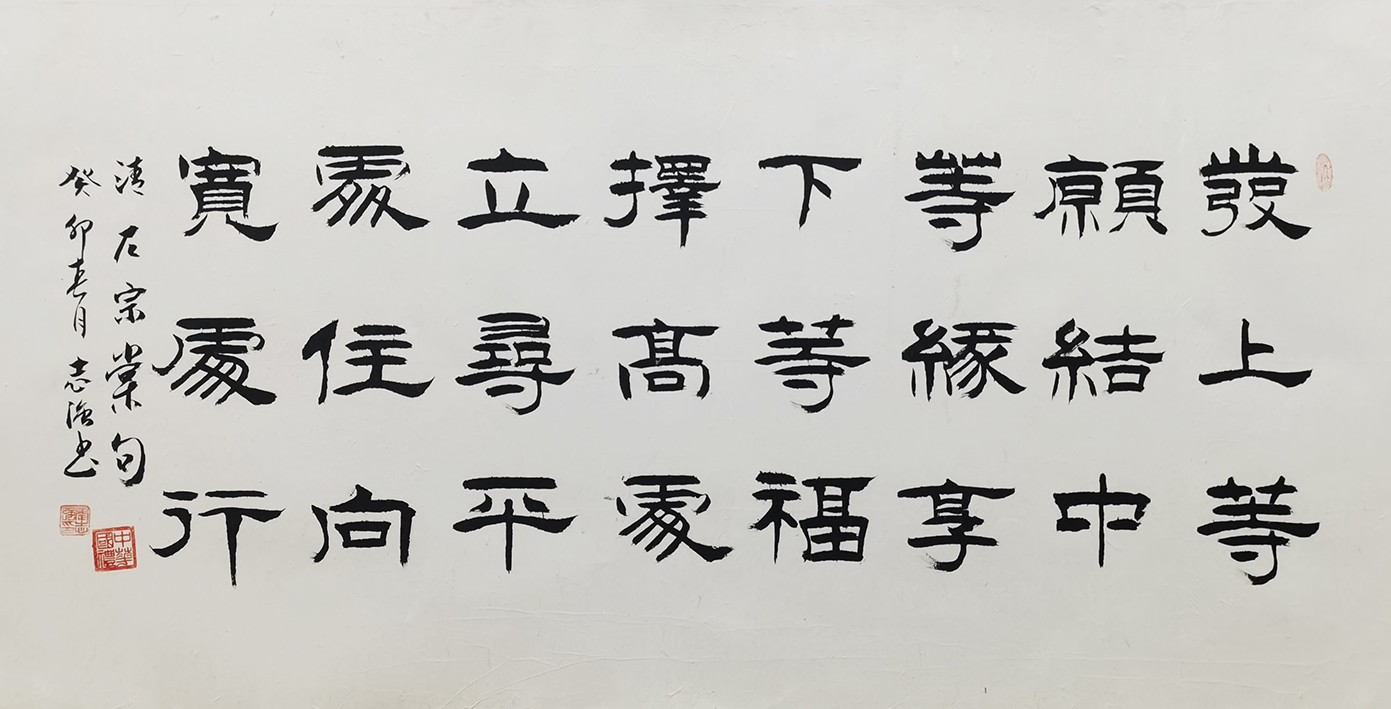 發上等
願結中
等緣享
下等福
擇高處
立尋平
處住向
寬處行
清左宗棠句
癸卯春月志強书
中華國禮